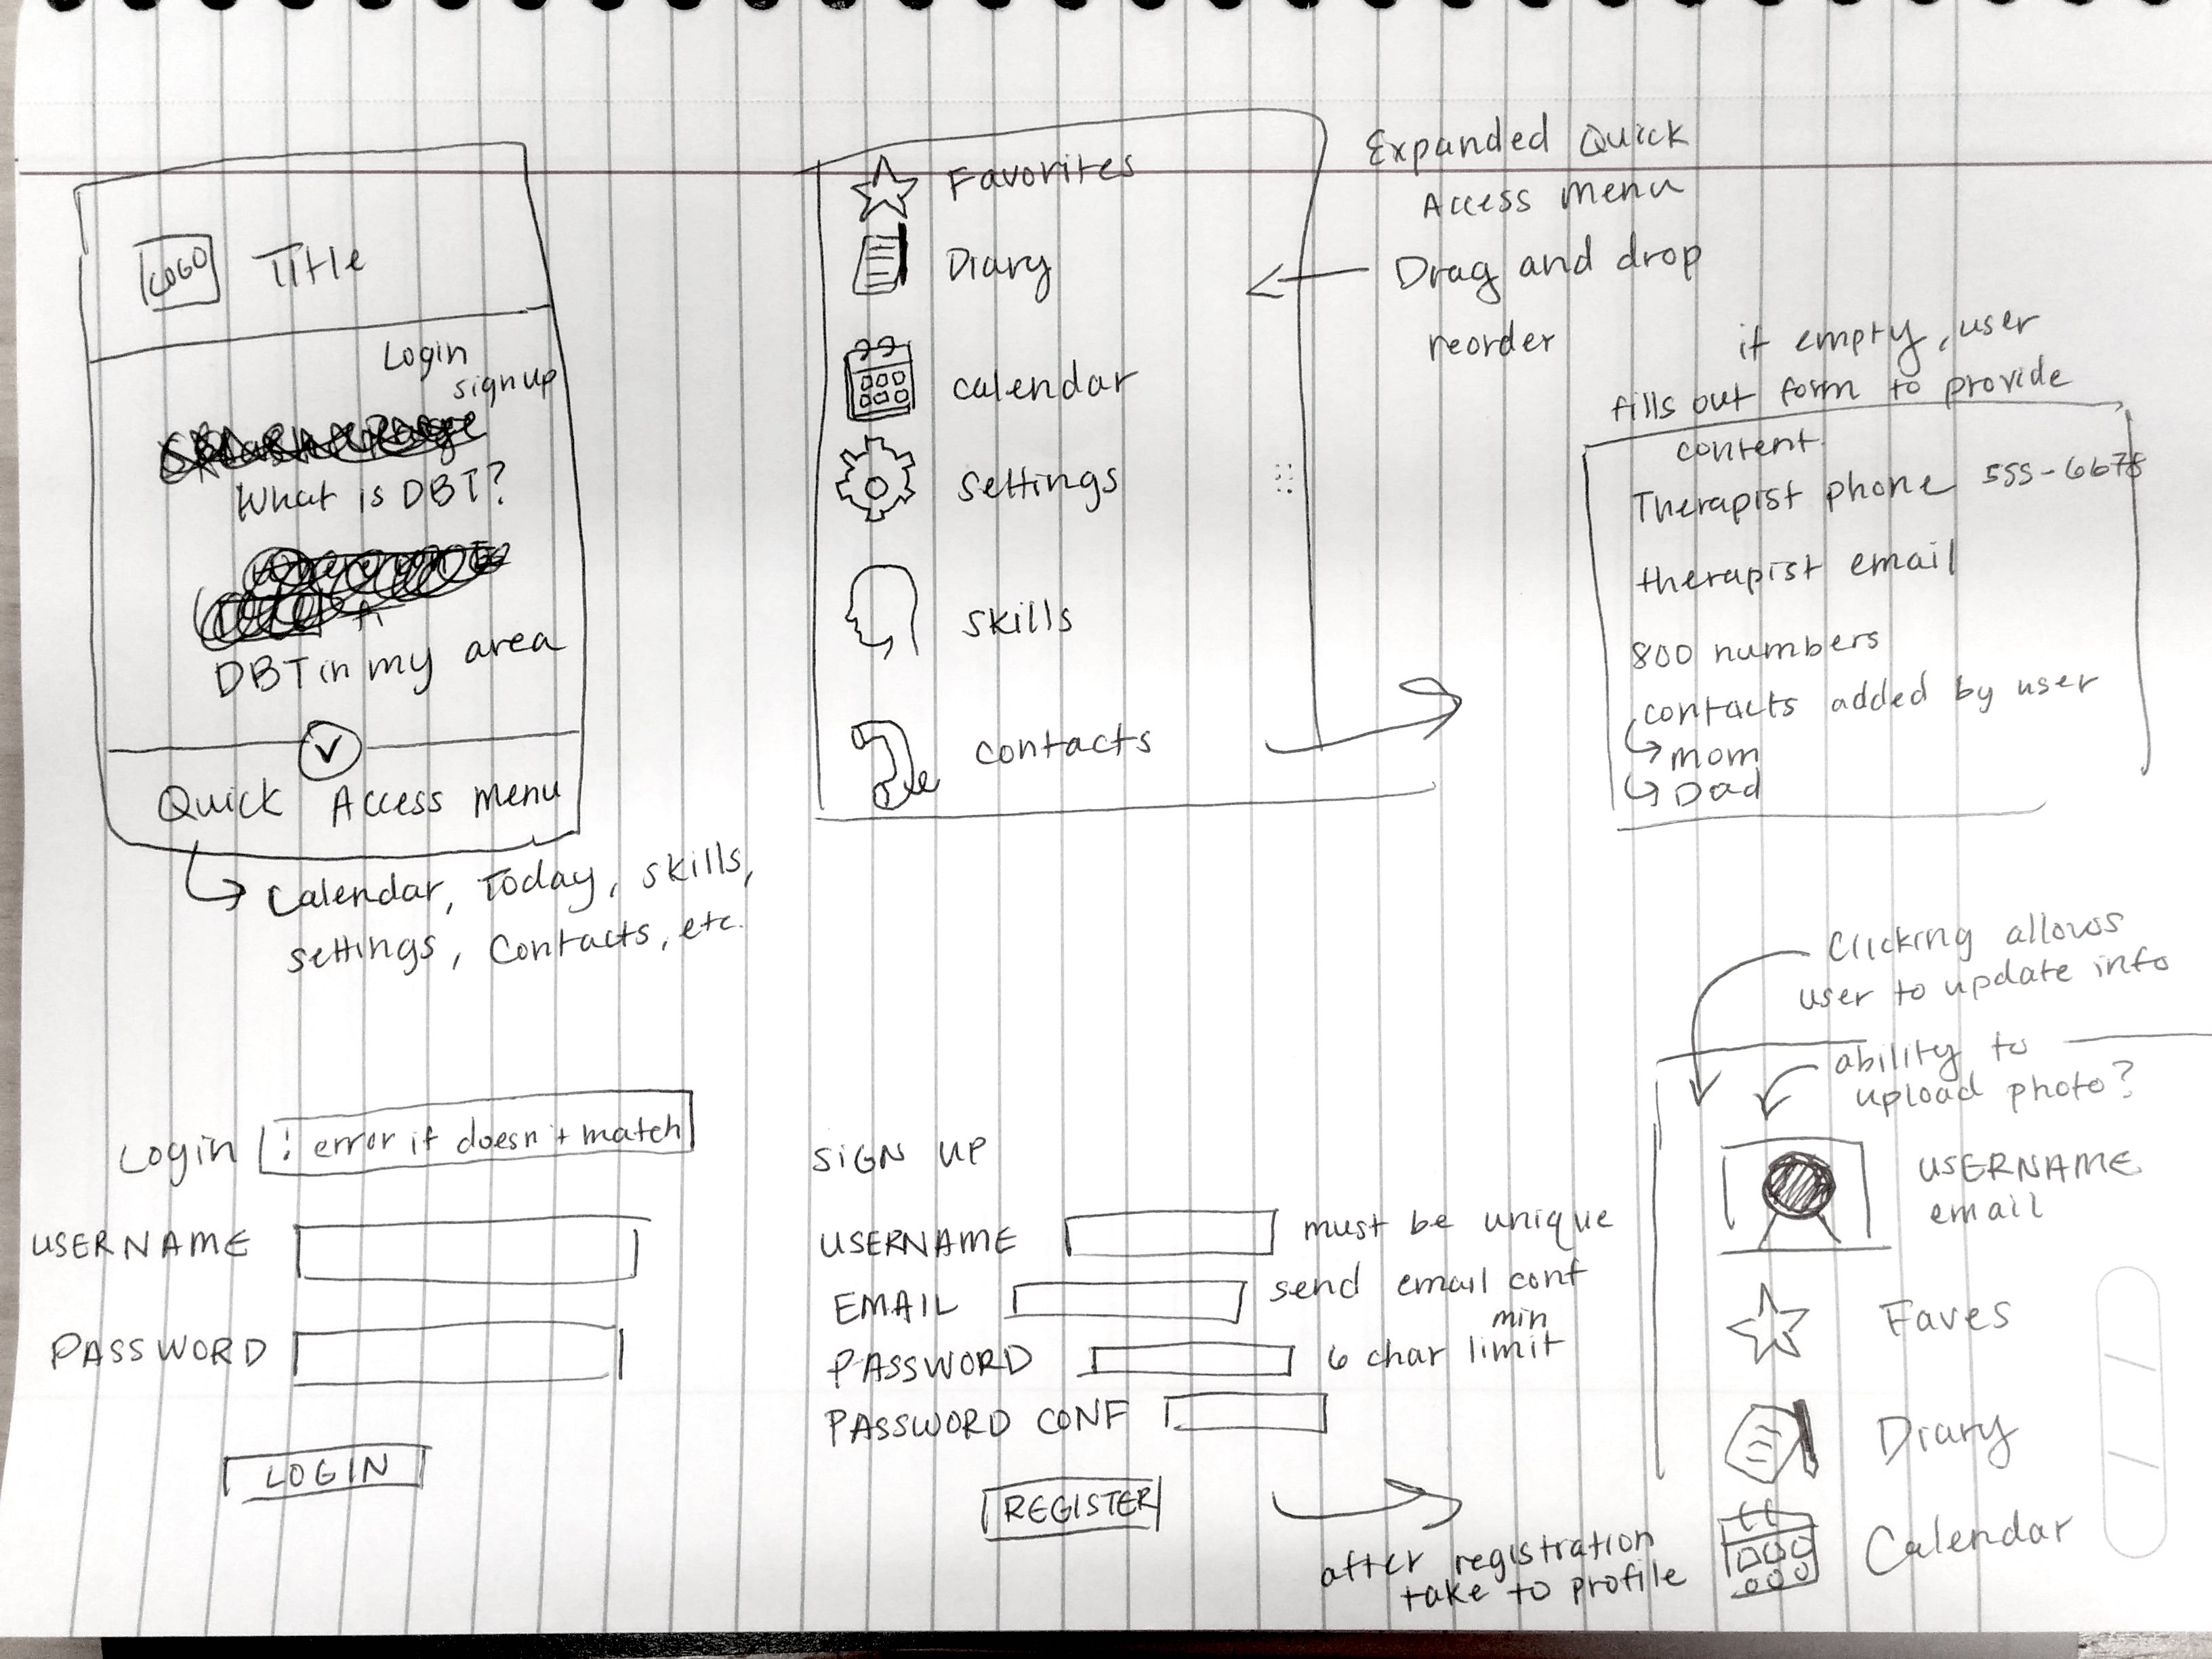 LOGO Title
Login
signup
What is DBT?
DBT in my area
Quick Access Menu
Calendar, Today, skills,
settings, Contacts, etc.
Favorites
Diary
calendar
settings
skills
contacts
Expanded Quick
Access Menu
Drag and drop
reorder
if empty, user
fills out form to provide
content
Therapist phone 555-6678
therapist email
800 numbers
contacts added by user
mom
Dad
Login ! error if doesn't match
USERNAME
PASSWORD
LOGIN
SIGN UP
USERNAME must be unique
EMAIL send email conf
min
PASSWORD 6 char limit
PASSWORD CONF
REGISTER
after registration
take to profile
Clicking allows
user to update info
ability to
upload photo?
USERNAME
email
Faves
Diary
Calendar